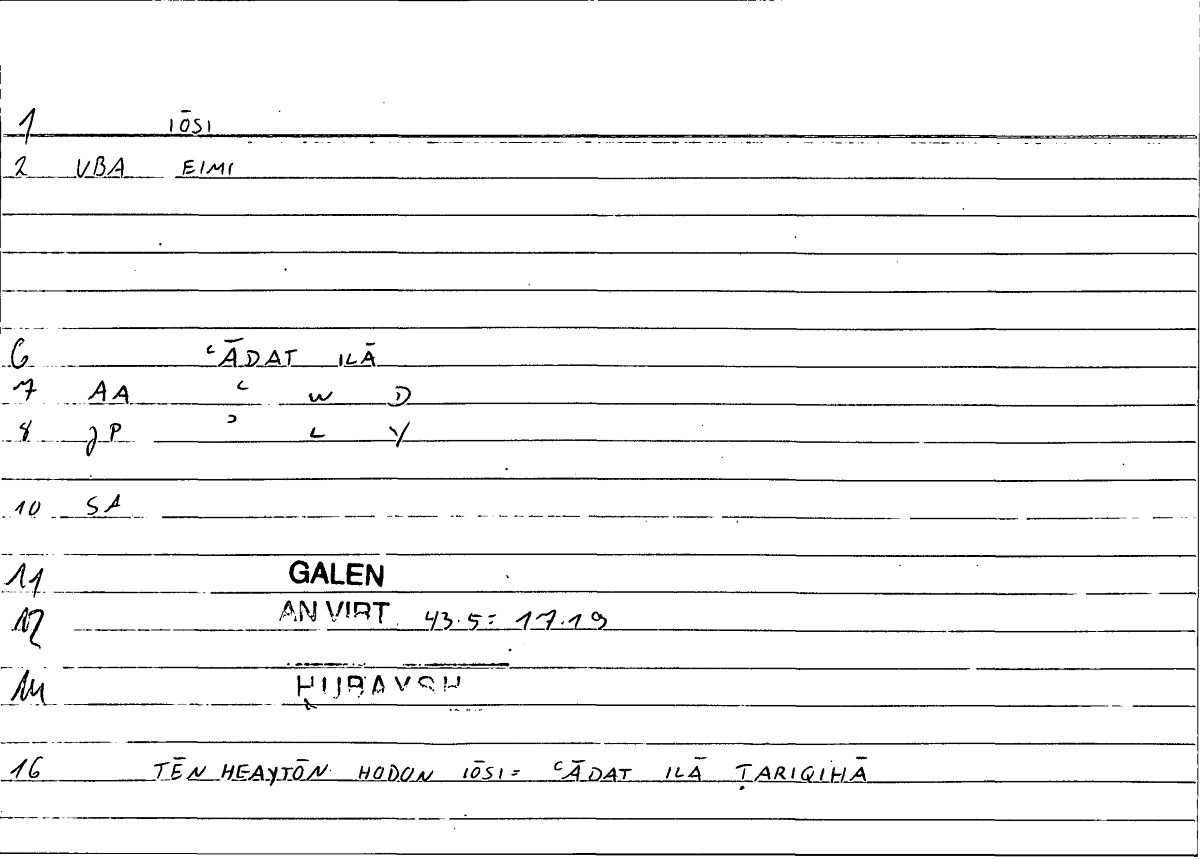 1 IŌSI
2 VBA EIMI
6 ʿĀDAT ILĀ
7 AA ʿ W D
8 JP ʾ L Y
10 SA
11 GALEN
12 AN VIRT 43.5 = 17.19
14 ḤUBAYSH
16 TĒN HEAYTŌN HODON IŌSI = ʿĀDAT ILĀ ṬARIQIHĀ